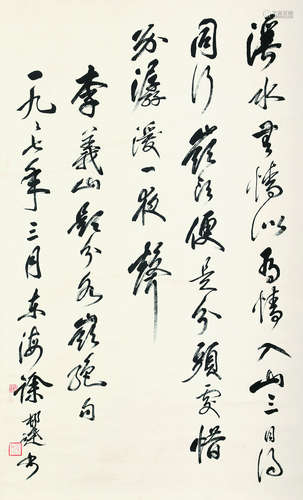 溪水無情似有情入山三日得
同行嶺頭便是分頭處惜
別潺湲一夜聲
李義山題分水嶺絕句
一九七七年三月東海徐邦達書